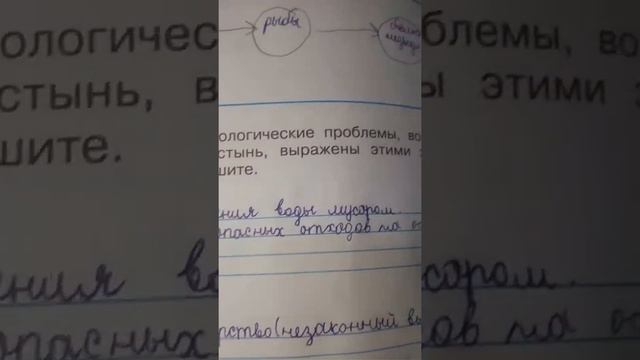 рыбы
ологические проблемы, во
стынь, выражены этими
шите.
ния воды мусором.
опасных отходов на о
рство(незаконный вы